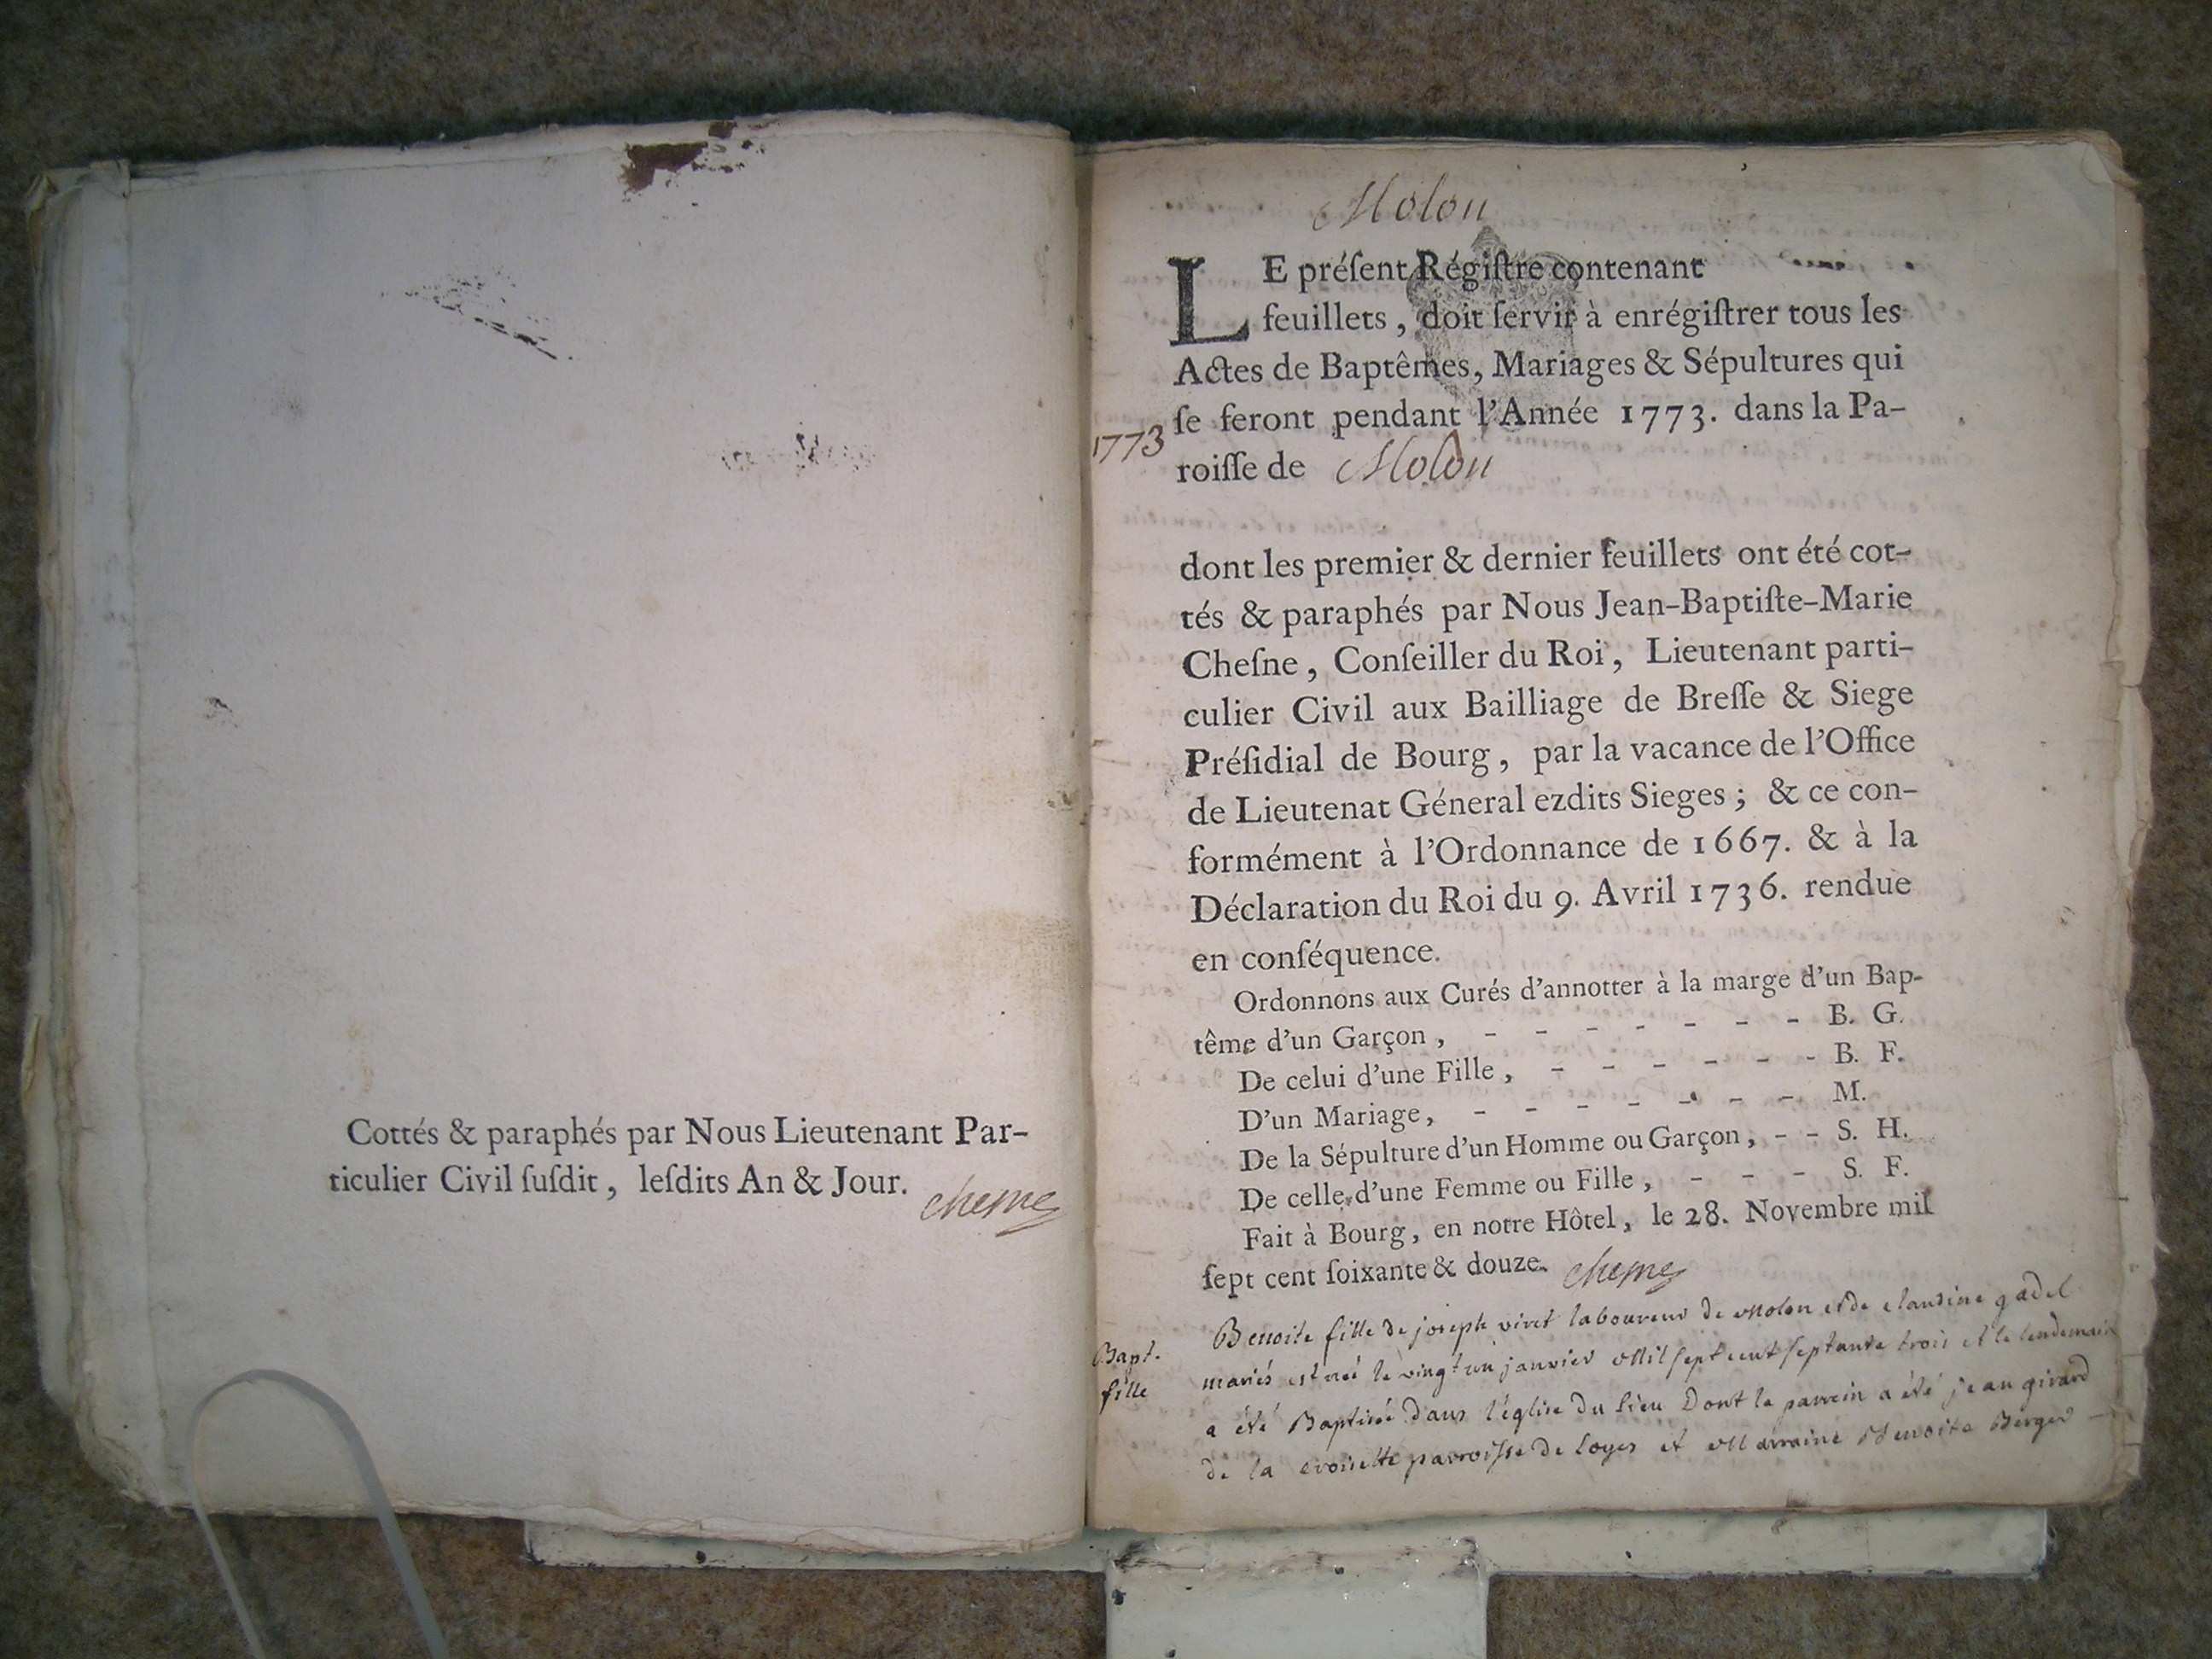 Cottés & paraphés par Nous Lieutenant Par-
ticulier Civil ſuſdit, leſdits An & Jour.
Cheſne
Molon
LE préſent Régiſtre contenant
feuillets, doit ſervir à enrégiſtrer tous les
Actes de Baptêmes, Mariages & Sépultures qui
ſe feront pendant l'Année 1773. dans la Pa-
1773
roiſſe de Molon
dont les premier & dernier feuillets ont été cot-
tés & paraphés par Nous Jean-Baptiſte-Marie
Cheſne, Conſeiller du Roi, Lieutenant parti-
culier Civil aux Bailliage de Breſſe & Siege
Préſidial de Bourg, par la vacance de l'Office
de Lieutenat Géneral ezdits Sieges; & ce con-
formément à l'Ordonnance de 1667. & à la
Déclaration du Roi du 9. Avril 1736. rendue
en conſéquence.
Ordonnons aux Curés d'annotter à la marge d'un Bap-
tême d'un Garçon, - - - - - - - B. G.
De celui d'une Fille, - - - - - - B. F.
D'un Mariage, - - - - - - - M.
De la Sépulture d'un Homme ou Garçon, - - S. H.
De celle d'une Femme ou Fille, - - - S. F.
Fait à Bourg, en notre Hôtel, le 28. Novembre mil
ſept cent ſoixante & douze. Cheſne
Bapt.
fille
Benoite fille de joseph viret laboureur de Molon et de claudine gadel
mariés est née le vingt un janvier Mil sept cent septante trois et le lendemain
a été Baptisée dans l'église du Lieu Dont le parrein a été jean girard
de la parroisse de Loyes et Marraine Benoite Berger